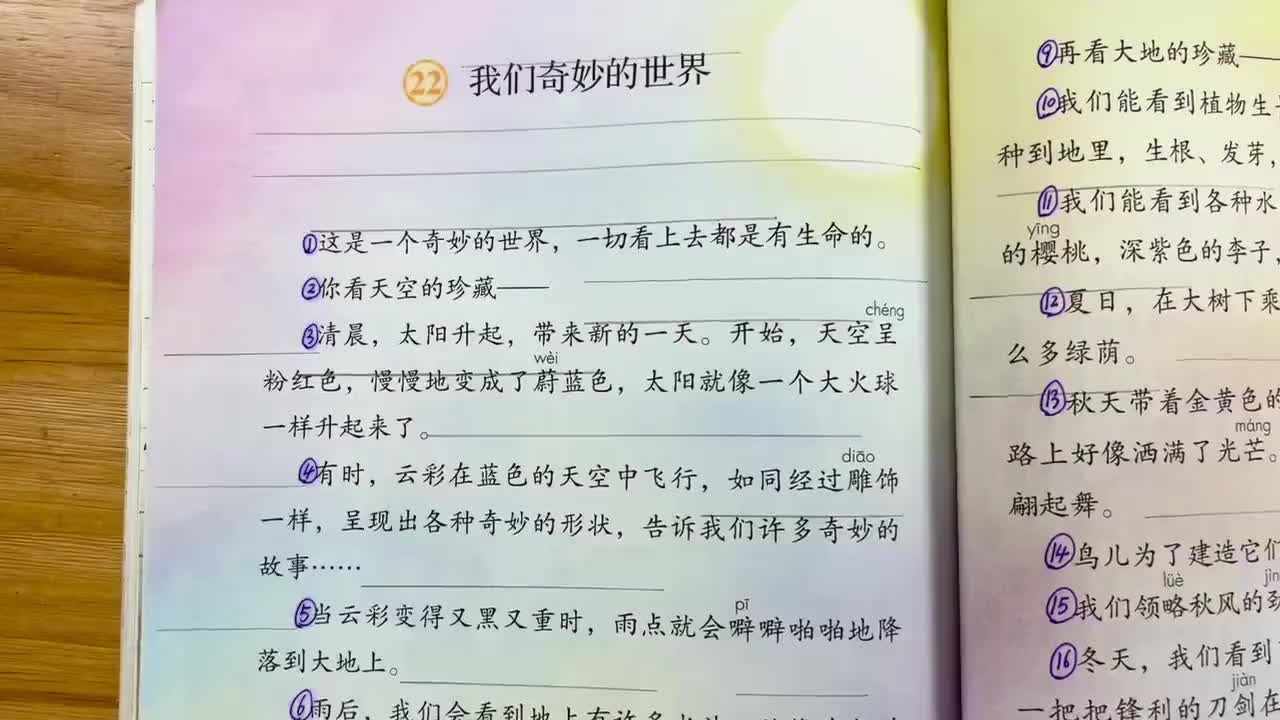 22 我们奇妙的世界
①这是一个奇妙的世界，一切看上去都是有生命的。
②你看天空的珍藏——
chéng
③清晨，太阳升起，带来新的一天。开始，天空呈
wèi
粉红色，慢慢地变成了蔚蓝色，太阳就像一个大火球
一样升起来了。
diāo
④有时，云彩在蓝色的天空中飞行，如同经过雕饰
一样，呈现出各种奇妙的形状，告诉我们许多奇妙的
故事……
pī
⑤当云彩变得又黑又重时，雨点就会噼噼啪啪地降
落到大地上。
⑥雨后，我们会看到地上有许多
⑨再看大地的珍藏——
⑩我们能看到植物生
种到地里，生根、发芽，
⑪我们能看到各种水
yīng
的樱桃，深紫色的李子，
⑫夏日，在大树下乘
么多绿荫。
⑬秋天带着金黄色的
máng
路上好像洒满了光芒。
翩起舞。
⑭鸟儿为了建造它们
lüè
⑮我们领略秋风的
⑯冬天，我们看到
jiàn
一把把锋利的刀剑在